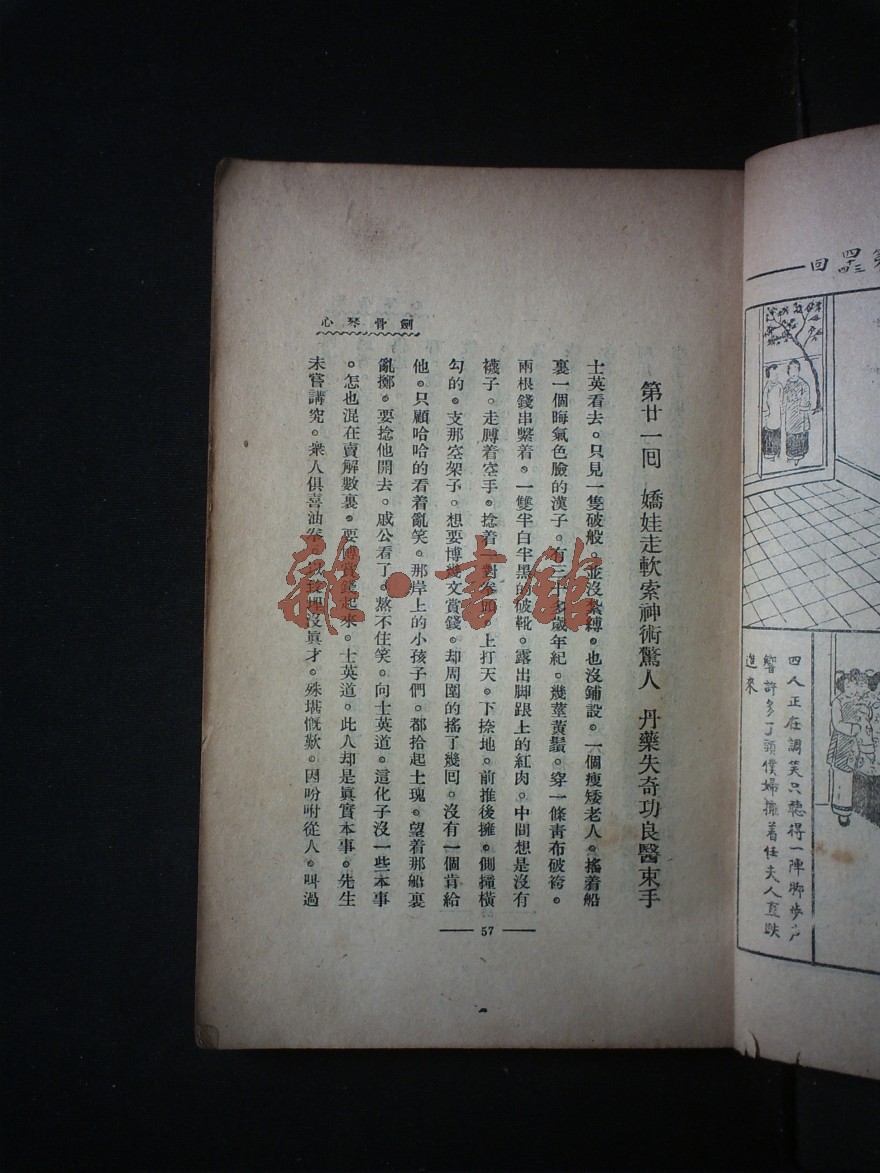 四十三四回
四人正在調笑只聽得一陣脚步户
響許多丫頭僕婦擁着任夫人直跌
進來
劍骨琴心
第廿一囘　嬌娃走軟索神術驚人　丹藥失奇功良醫束手
士英看去。只見一隻破般。並沒紮縛。也沒鋪設。一個瘦矮老人。搖着船
裏一個晦氣色臉的漢子。有三十多歲年紀。幾莖黃鬚。穿一條靑布破袴。
兩根錢串繫着。一雙半白半黑的破靴。露出脚跟上的紅肉。中間想是沒有
襪子。走膊着空手。捻着一對拳頭。上打天。下捺地。前推後擁。側撞橫
勾的。支那空架子。想要博幾文賞錢。却周圍的搖了幾囘。沒有一個肯給
他。只顧哈哈的看着亂笑。那岸上的小孩子們。都拾起土瑰。望着那船裏
亂擲。要捻他開去。戚公看了。熬不住笑。向士英道。這化子沒一些本事
。怎也混在賣解數裏。要博賞錢起來。士英道。此人却是眞實本事。先生
未嘗講究。衆人俱喜油拳。埋沒眞才。殊堪慨歎。因吩咐從人。叫過
57
雜·書館